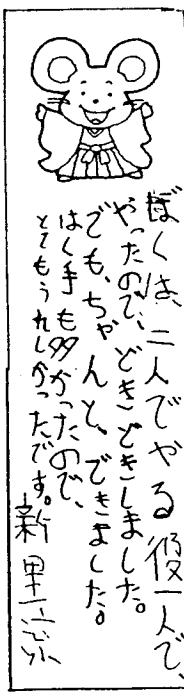 ぼくは、二人でやる役一人で、
やったので、どきどきしました。
でも、ちゃんと、できました。
はく手も多かったので、
とてもうれしかったです。新里